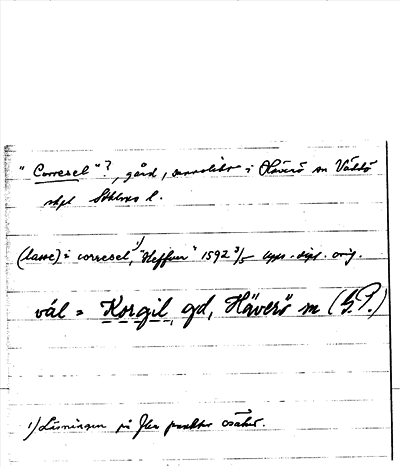 "Correcel"?, gård, i Häverö sn Väddö
skpl Sthlms l.
(lasse) i correcel,¹) "Heffuer" 1592 3/5 Upps. dipl. orig.
väl = Korgil, gd, Häverö sn. (G.P.)
1) Läsningen på flera punkter osäker.